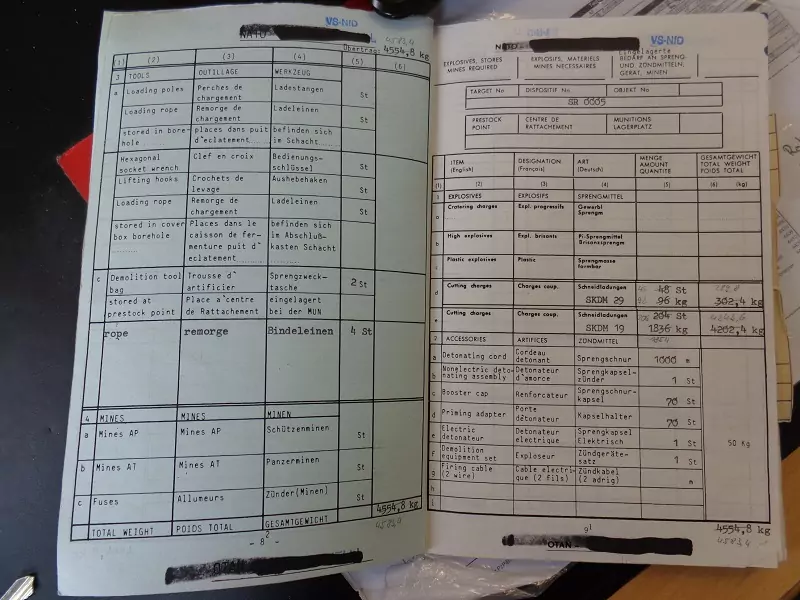 VS-NfD
NATO
4583,4
Übertrag: 4554,8 kg
(1) (2) (3) (4) (5) (6)
3 TOOLS OUTILLAGE WERKZEUG
a Loading poles Perches de chargement Ladestangen St
Loading rope Remorge de chargement Ladeleinen St
stored in bore-hole places dans puit d'eclatement befinden sich im Schacht
Hexagonal socket wrench Clef en croix Bedienungs-schlüssel St
Lifting hooks Crochets de lewage Aushebehaken St
Loading rope Remorge de chargement Ladeleinen St
stored in cover box borehole Places dans le caisson de fer-menture puit d'eclatement befinden sich im Abschluß-kasten Schacht
c Demolition tool bag Trousse d'artificier Sprengzweck-tasche 2 St
stored at prestock point Place a'centre de Rattachement eingelagert bei der MUN
rope remorge Bindeleinen 4 St
4 MINES MINES MINEN
a Mines AP Mines AP Schützenminen St
b Mines AT Mines AT Panzerminen St
c Fuses Allumeurs Zünder(Minen) St
TOTAL WEIGHT POIDS TOTAL GESAMTGEWICHT 4554,8 kg
4583,4
- 8² -
OTAN
VS-NfD
NATO
EXPLOSIVES, STORES MINES REQUIRED
EXPLOSIFS, MATERIELS MINES NECESSAIRES
Eingelagerte
BEDARF AN SPRENG- UND ZÜNDMITTELN, GERÄT, MINEN
TARGET No DISPOSITIF No OBJEKT No
SR 0005
PRESTOCK POINT CENTRE DE RATTACHEMENT MUNITIONS LAGERPLATZ
ITEM (English) DESIGNATION (Français) ART (Deutsch) MENGE AMOUNT QUANTITE GESAMTGEWICHT TOTAL WEIGHT POIDS TOTAL
(1) (2) (3) (4) (5) (6) (kg)
1 EXPLOSIVES EXPLOSIFS SPRENGMITTEL
a Cratering charges Expl. progressifs Gewerbl Sprengm
b High explosives Expl. brisants Pi-Sprengmittel Brisanzsprengm
c Plastic explosives Plastic Sprengmasse formbar
d Cutting charges Charges coup. Schneidladungen 48 St
SKDM 29 96 kg 302,4 kg
e Cutting charges Charges coup. Schneidladungen 204 St
SKDM 19 1836 kg 4202,4 kg
2 ACCESSORIES ARTIFICES ZÜNDMITTEL
a Detonating cord Cordeau detonant Sprengschnur 1000 m
b Nonelectric deto-nating assembly Detonateur d'amorce Sprengkapsel-zünder 1 St
c Booster cap Renforcateur Sprengschnur-kapsel 70 St
d Priming adapter Porte détonateur Kapselhalter 70 St
e Electric detonateur Detonateur electrique Sprengkapsel Elektrisch 1 St
50 Kg
f Demolition equipment set Exploseur Zündgeräte-satz 1 St
g Firing cable (2 wire) Cable electri-que (2 fils) Zündkabel (2 adrig) m
h
i
4554,8 kg
4583,4
9¹
OTAN -